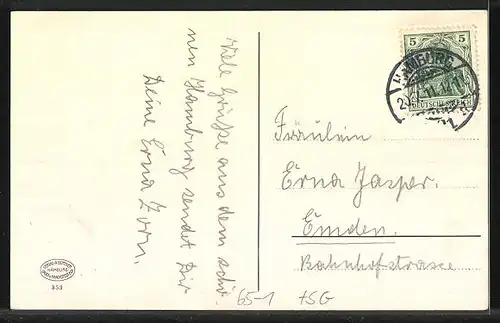 Viele Grüße aus dem schö-
nen Hamburg sendet Dir
Deine Erna Zorn.
5 5
DEUTSCHES REICH
HAMBURG
Fräulein
Erna Jasper.
Emden.
Bahnhofstrasse
HAMBURG
353
65-1 HSG